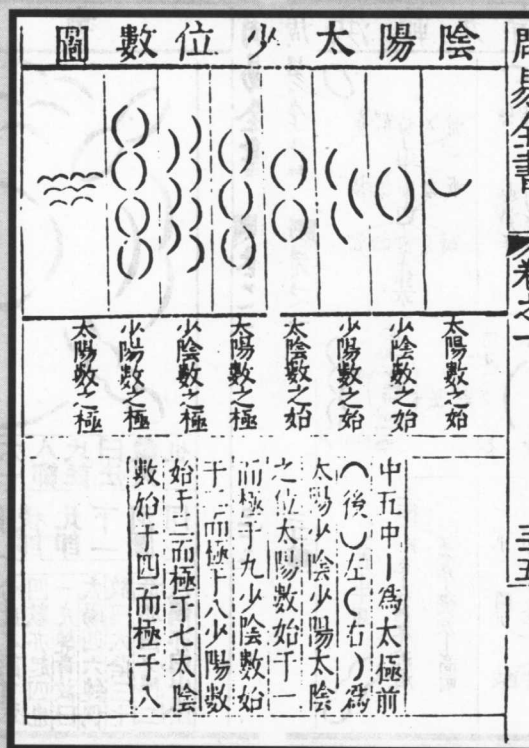 周易全書 卷之一 三五
陰陽太少位數圖
太陽數之始
少陰數之始
少陽數之始
太陰數之始
太陽數之極
少陰數之極
少陽數之極
太陽數之極
中五中丨爲太極前
⌒後◡左(右)爲
太陽少陰少陽太陰
之位太陽數始于一
而極于九少陰數始
于二而極于八少陽數
始于三而極于七太陰
數始于四而極于八